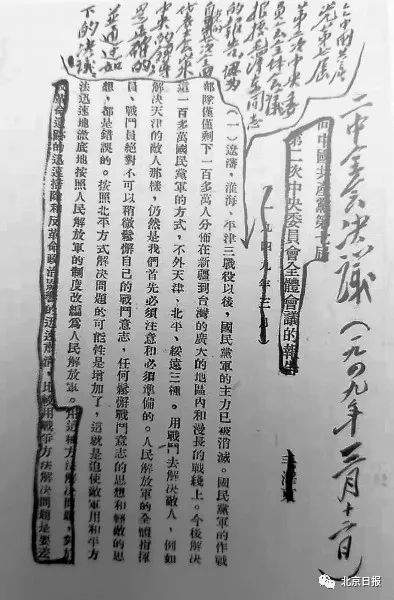 二中全会決議（一九四九年三月十三日）
在中國共產黨第七屆
第二次中央委員會全體會議的報告
一九四九年三月
第二次中央委
員会全体会議
根據毛澤東同志
的報告認為
並通过如
下的決議
（一）遼瀋，淮海、平津三戰役以後，國民黨軍的主力已被消滅。國民黨軍的作戰
部隊僅僅剩下一百多萬人分佈在新疆到台灣的廣大的地區內和漫長的戰綫上。今後解決
這一百多萬國民黨軍的方式，不外天津、北平、綏遠三種。用戰鬥去解決敵人，例如
解決天津的敵人那樣，仍然是我們首先必須注意和必須準備的。人民解放軍的全體指揮
員、戰鬥員絕對不可以稍微鬆懈自己的戰鬥意志，任何鬆懈戰鬥意志的思想和輕敵的思
想，都是錯誤的。按照北平方式解決問題的可能性是增加了，這就是迫使敵軍用和平方
法迅速地澈底地按照人民解放軍的制度改編爲人民解放軍。用這種方法解決問題，對於
反革命遺跡的迅速掃除和反革命政治影響的迅速肅清，比較用戰爭方法解決問題是要差
北京日报